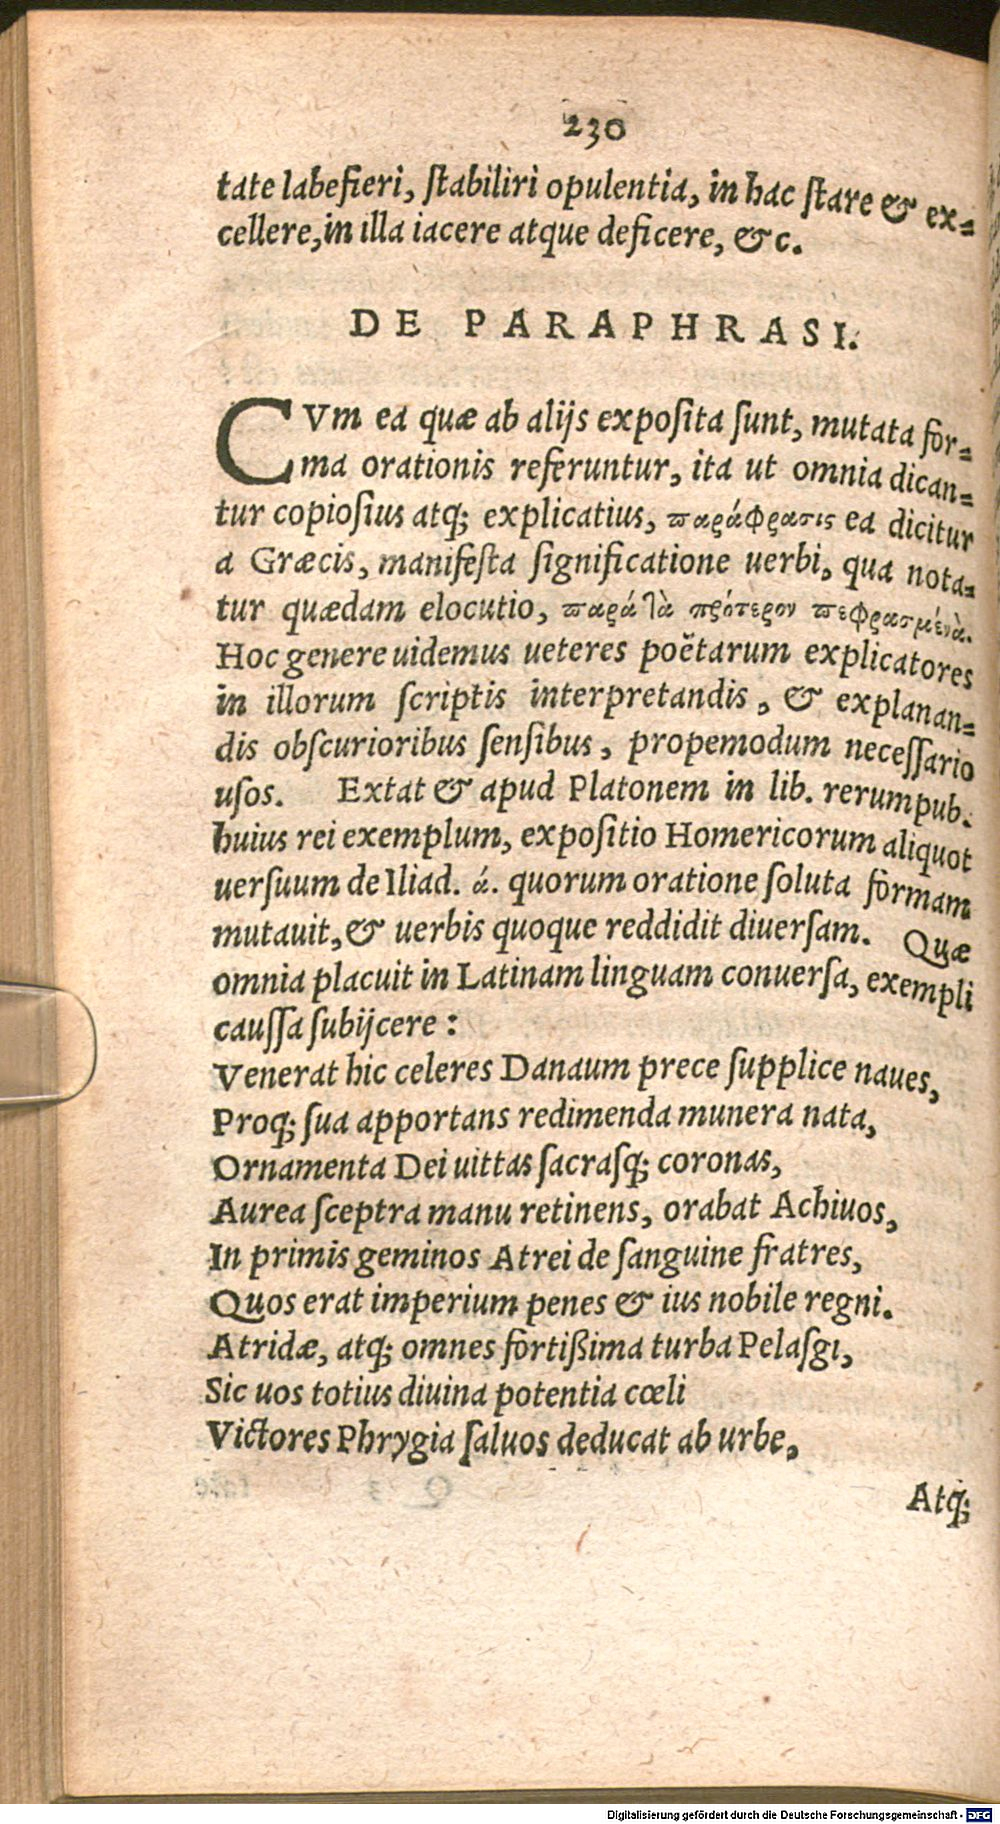 230
tate labefieri, ſtabiliri opulentia, in hac ſtare & ex-
cellere, in illa iacere atque deficere, &c.
DE PARAPHRASI.
CVm ea quæ ab alijs expoſita ſunt, mutata for-
ma orationis referuntur, ita ut omnia dican-
tur copioſius atq; explicatius, παράφρασις ea dicitur
a Græcis, manifeſta ſignificatione uerbi, qua nota-
tur quædam elocutio, παρά τὰ πρότερον πεφρασμένὰ.
Hoc genere uidemus ueteres poëtarum explicatores
in illorum ſcriptis interpretandis, & explanan-
dis obſcurioribus ſenſibus, propemodum neceſſario
uſos. Extat & apud Platonem in lib. rerumpub.
huius rei exemplum, expoſitio Homericorum aliquot
uerſuum de Iliad. ά. quorum oratione ſoluta formam
mutauit, & uerbis quoque reddidit diuerſam. Quæ
omnia placuit in Latinam linguam conuerſa, exempli
cauſſa ſubijcere:
Venerat hic celeres Danaum prece ſupplice naues,
Proq; ſua apportans redimenda munera nata,
Ornamenta Dei uittas ſacraſq; coronas,
Aurea ſceptra manu retinens, orabat Achiuos,
In primis geminos Atrei de ſanguine fratres,
Quos erat imperium penes & ius nobile regni.
Atridæ, atq; omnes fortißima turba Pelaſgi,
Sic uos totius diuina potentia cœli
Victores Phrygia ſaluos deducat ab urbe,
Atq;
Digitalisierung gefördert durch die Deutsche Forschungsgemeinschaft - DFG